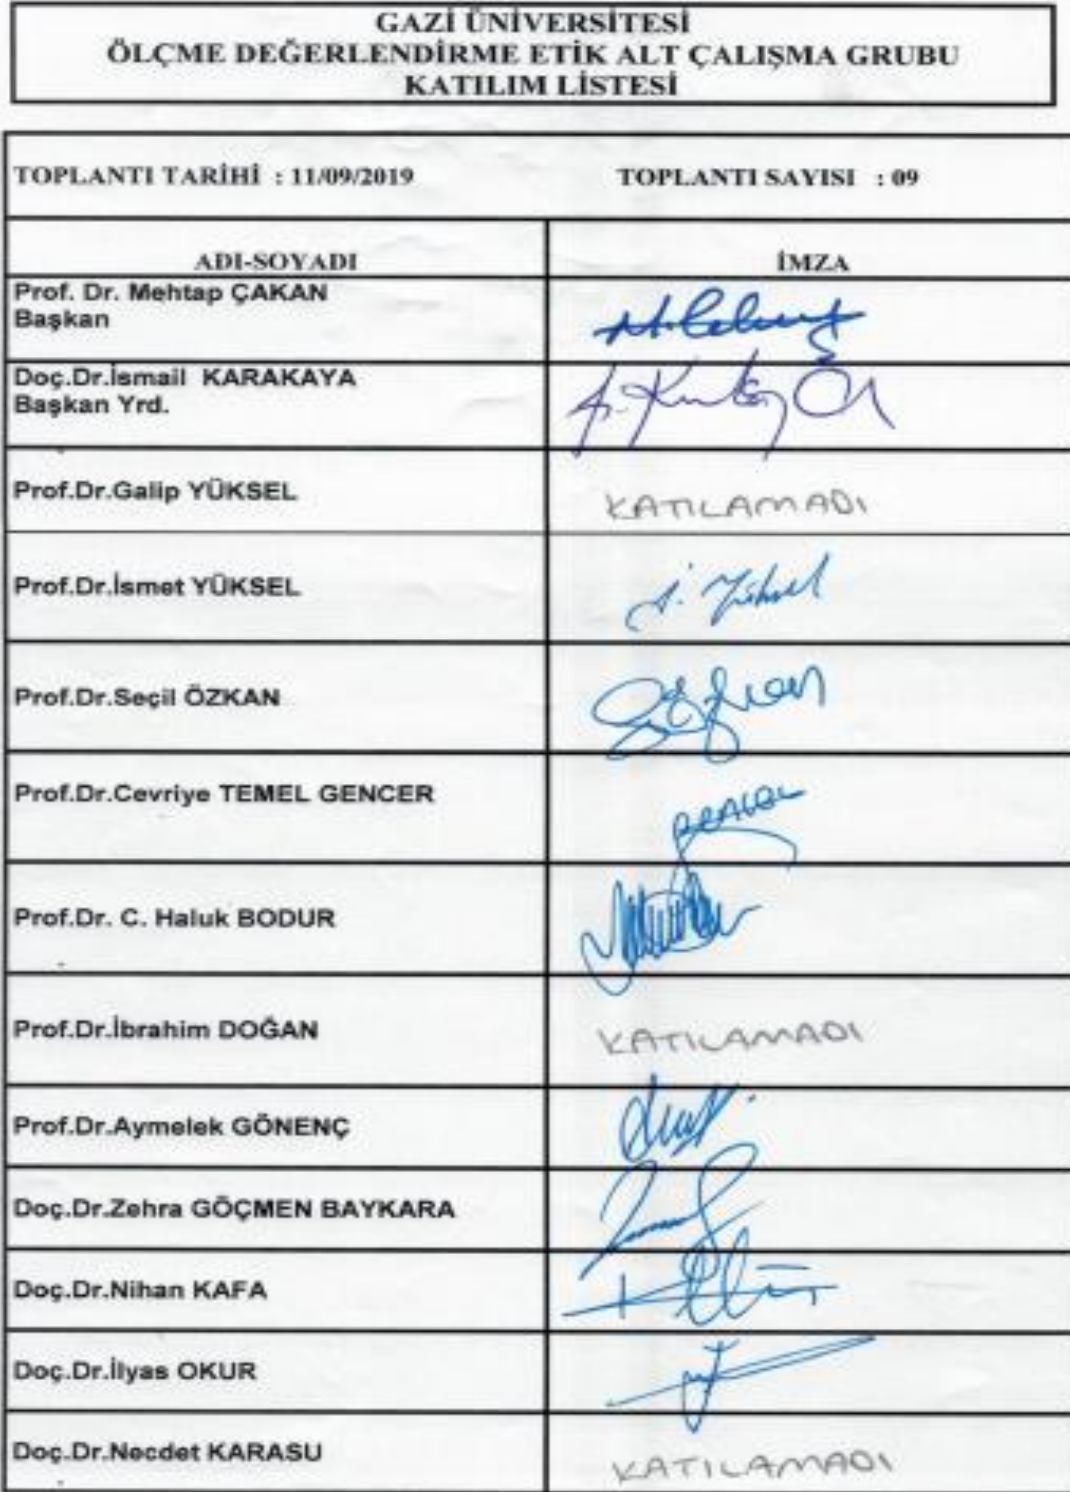 GAZİ ÜNİVERSİTESİ
ÖLÇME DEĞERLENDİRME ETİK ALT ÇALIŞMA GRUBU
KATILIM LİSTESİ
TOPLANTI TARİHİ : 11/09/2019 TOPLANTI SAYISI : 09
ADI-SOYADI İMZA
Prof. Dr. Mehtap ÇAKAN
Başkan
Doç.Dr.İsmail KARAKAYA
Başkan Yrd.
Prof.Dr.Galip YÜKSEL KATILAMADI
Prof.Dr.İsmet YÜKSEL İ. Yüksel
Prof.Dr.Seçil ÖZKAN
Prof.Dr.Cevriye TEMEL GENCER
Prof.Dr. C. Haluk BODUR
Prof.Dr.İbrahim DOĞAN KATILAMADI
Prof.Dr.Aymelek GÖNENÇ
Doç.Dr.Zehra GÖÇMEN BAYKARA
Doç.Dr.Nihan KAFA
Doç.Dr.İlyas OKUR
Doç.Dr.Necdet KARASU KATILAMADI